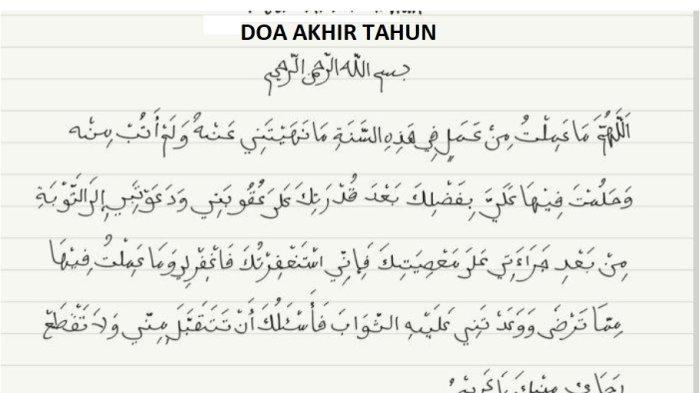 DOA AKHIR TAHUN
بسم الله الرحمن الرحيم
اَللّٰهُمَّ مَا عَمِلْتُ مِنْ عَمَلٍ فِي هَذِهِ السَّنَةِ مَا نَهَيْتَنِي عَنْهُ وَلَمْ أَتُبْ مِنْه
وَحَلُمْتَ فِيْهَا عَلَيَّ بِفَضْلِكَ بَعْدَ قُدْرَتِكَ عَلَى عُقُوبَتِي وَدَعَوْتَنِي إِلَى التَّوْبَةِ
مِنْ بَعْدِ جَرَاءَتِي عَلَى مَعْصِيَتِكَ فَإِنِّي اسْتَغْفَرْتُكَ فَاغْفِرْلِي وَمَا عَمِلْتُ فِيْهَا
مِمَّا تَرْضَى وَوَعَدْتَنِي عَلَيْهِ الثَّوَابَ فَأَسْئَلُكَ أَنْ تَتَقَبَّلَ مِنِّي وَلَا تَقْطَعْ
رَجَائِي مِنْكَ يَا كَرِيْمُ